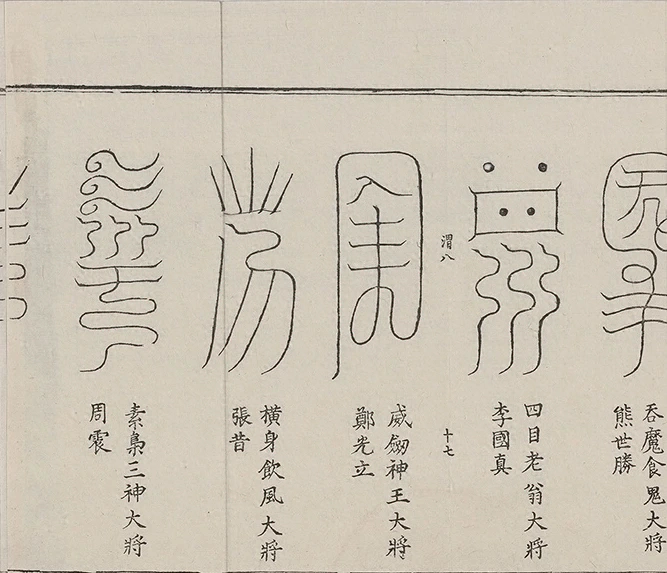 吞魔食鬼大将
熊世勝
四目老翁大将
李國真
渭八
十七
威劒神王大将
鄭先立
横身飲風大将
張昔
素梟三神大将
周震